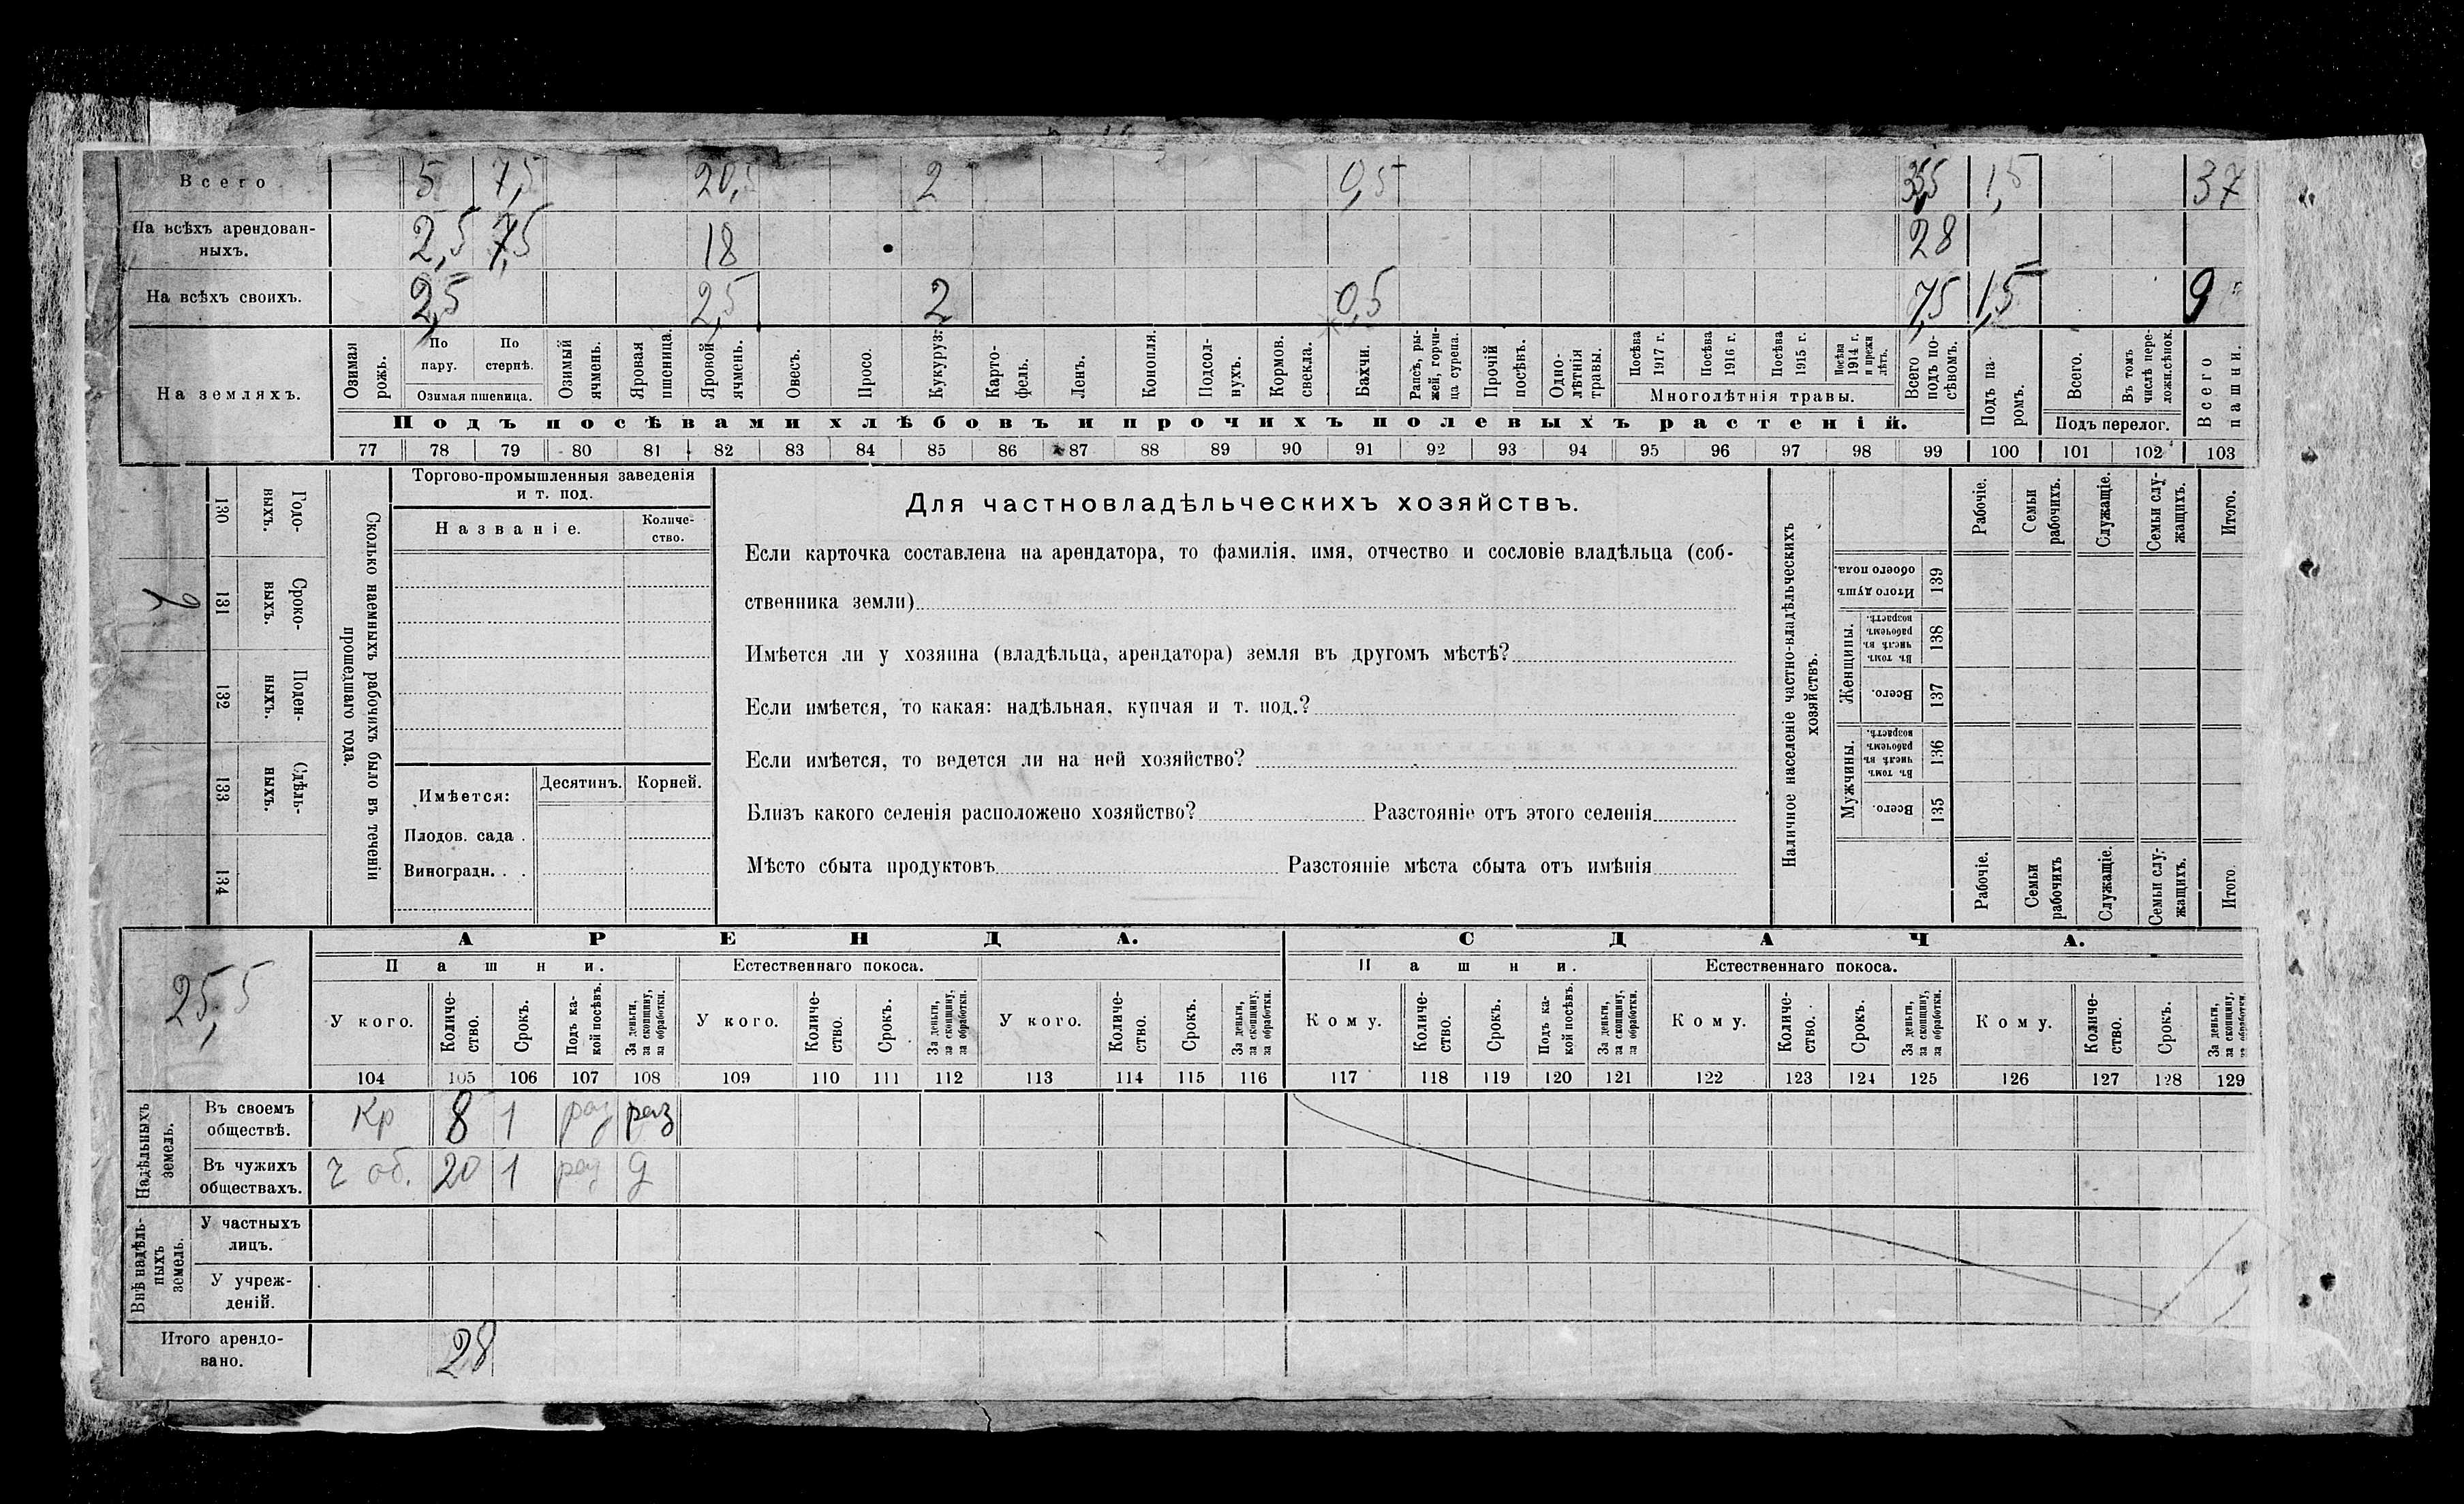 Всего 5 7,5 20,5 2 0,5 35,5 1,5 37
На всѣхъ арендован-
ныхъ. 2,5 7,5 18 28
На всѣхъ своихъ. 2,5 2,5 2 0,5 7,5 1,5 9
На земляхъ.
Озимая рожь.
По пару.
По стернѣ.
Озимая пшеница.
Озимый ячмень.
Яровая пшеница.
Яровой ячмень.
Овесъ.
Просо.
Кукуруз.
Карто-
фель.
Ленъ.
Конопля.
Подсол-
нухъ.
Кормов.
свекла.
Бахчи.
Рапсъ, ры-
жей, горчи-
ца сурепа.
Прочій
посѣвъ.
Одно-
лѣтнія
травы.
Посѣва
1917 г.
Посѣва
1916 г.
Посѣва
1915 г.
Посѣва
1914 г.
и прежн
лѣтъ.
Многолѣтнія травы.
Всего
подъ по-
сѣвомъ.
Подъ па-
ромъ.
Всего.
Въ томъ
числѣ пере-
ложн.сѣнок.
Подъ перелог.
Всего
пашни.
Подъ посѣвами хлѣбовъ и прочихъ полевыхъ растеній.
77 78 79 80 81 82 83 84 85 86 87 88 89 90 91 92 93 94 95 96 97 98 99 100 101 102 103
130 Годо-
выхъ.
131 Сроко-
выхъ.
132 Поден-
ныхъ.
133 Сдѣль-
ныхъ.
134
Сколько наемныхъ рабочихъ было въ теченіи
прошедшаго года.
Торгово-промышленныя заведенія
и т. под.
Названіе.
Количе-
ство.
Имѣется:
Десятинъ. Корней.
Плодов. сада .
Виноградн. . .
Для частновладѣльческихъ хозяйствъ.
Если карточка составлена на арендатора, то фамилія, имя, отчество и сословіе владѣльца (соб-
ственника земли)
Имѣется ли у хозяина (владѣльца, арендатора) земля въ другомъ мѣстѣ?
Если имѣется, то какая: надѣльная, купчая и т. под.?
Если имѣется, то ведется ли на ней хозяйство?
Близъ какого селенія расположено хозяйство? Разстояніе отъ этого селенія
Мѣсто сбыта продуктовъ Разстояніе мѣста сбыта отъ имѣнія
Наличное населеніе частно-владѣльческихъ
хозяйствъ.
Рабочіе.
Семьи
рабочихъ.
Служащіе.
Семьи слу-
жащихъ.
Итого.
Итого душъ
обоего пола.
139
Женщины.
Въ томъ
числѣ въ
рабочемъ
возрастѣ.
138
Всего.
137
Мужчины.
Въ томъ
числѣ въ
рабочемъ
возрастѣ.
136
Всего.
135
Рабочіе.
Семьи
рабочихъ
Служащіе.
Семьи слу-
жащихъ.
Итого.
25,5
АРЕНДА. СДАЧА.
Пашни. Естественнаго покоса. Пашни. Естественнаго покоса.
У кого.
Количе-
ство.
Срокъ.
Подъ ка-
кой посѣвъ.
За деньги,
за скопщину,
за обработки.
У кого.
Количе-
ство.
Срокъ.
За деньги,
за скопщину,
за обработки.
У кого.
Количе-
ство.
Срокъ.
За деньги,
за скопщину,
за обработки.
Кому.
Количе-
ство.
Срокъ.
Подъ ка-
кой посѣвъ.
За деньги,
за скопщину,
за обработки.
Кому.
Количе-
ство.
Срокъ.
За деньги,
за скопщину,
за обработки.
Кому.
Количе-
ство.
Срокъ.
За деньги,
за скопщину,
за обработки.
104 105 106 107 108 109 110 111 112 113 114 115 116 117 118 119 120 121 122 123 124 125 126 127 128 129
Надѣльныхъ
земель.
Въ своемъ
обществѣ. Кр 8 1 раз раз
Въ чужихъ
обществахъ. ч об. 20 1 раз д
Внѣ надѣль-
ныхъ
земель.
У частныхъ
лицъ.
У учреж-
деній.
Итого арендо-
вано. 28